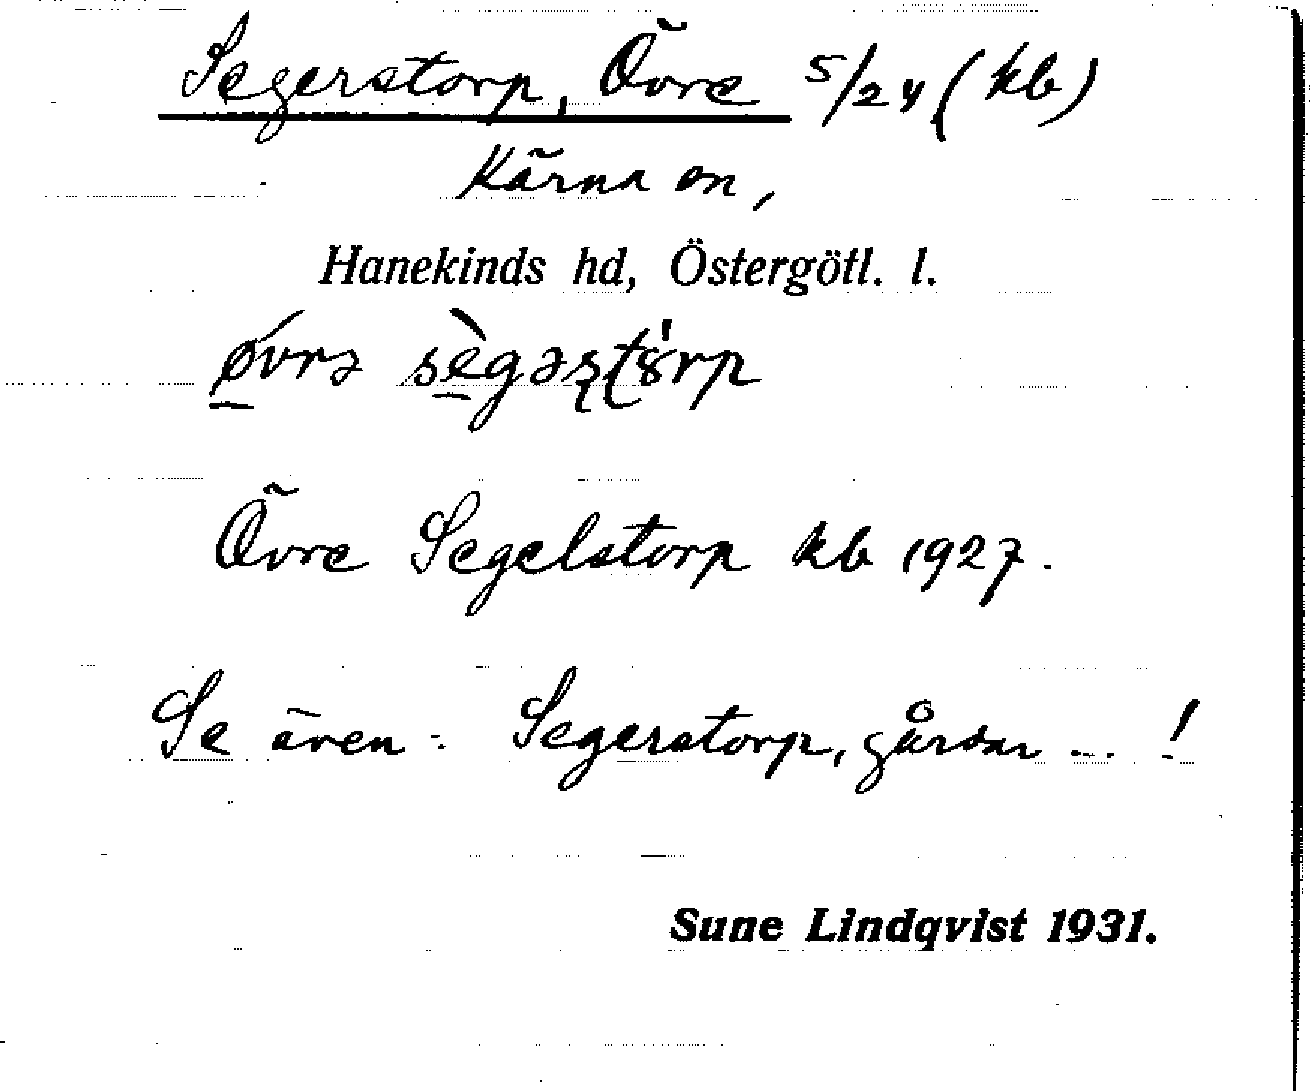 Segerstorp, Övre 5/24 (kb)
Kärna sn,
Hanekinds hd, Östergötl. l.
Övre Segelstorp kb 1927.
Se även: Segerstorp, gårdar ... !
Sune Lindqvist 1931.